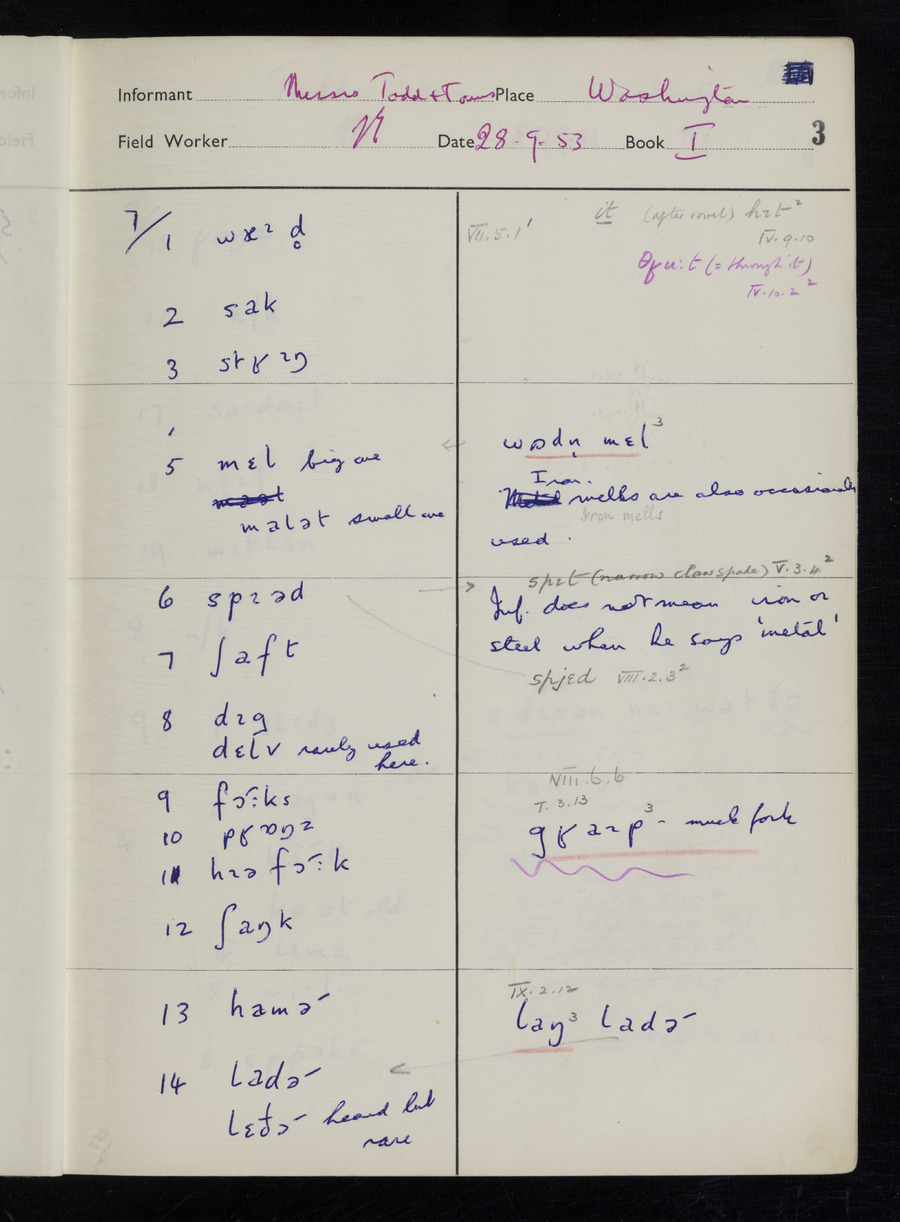 Informant Messrs Todd & Towns Place Washington
Field Worker Date 28.9.53 Book I 3
7/1 wɪəd̥
VII.5.1' it (after vowel) hɪt²
IV.9.10
θʁu:t (= through it)
IV.10.2²
2 sak
3 stʁɪŋ
5 mɛl big one
wʊdn̩ mɛl³
Iron
mells are also occasionally
Iron mells
used.
malət small one
spɪt (narrow claw spade) V.3.4²
6 spɪəd
Inf. does not mean iron or
steel when he says 'metal'
7 ʃaft
spjɛd VIII.2.3²
8 dɪg
dɛlv rarely used
here.
VIII.6.6
I.3.13
9 fɔ˞:ks
gʁaɪp³ - muck fork
10 pʁɒŋz
11 hɪə fɔ˞:k
12 ʃaŋk
IX.2.12
13 hamə˞
laŋ³ ladə˞
14 ladə˞
lɛðə˞ heard but
rare